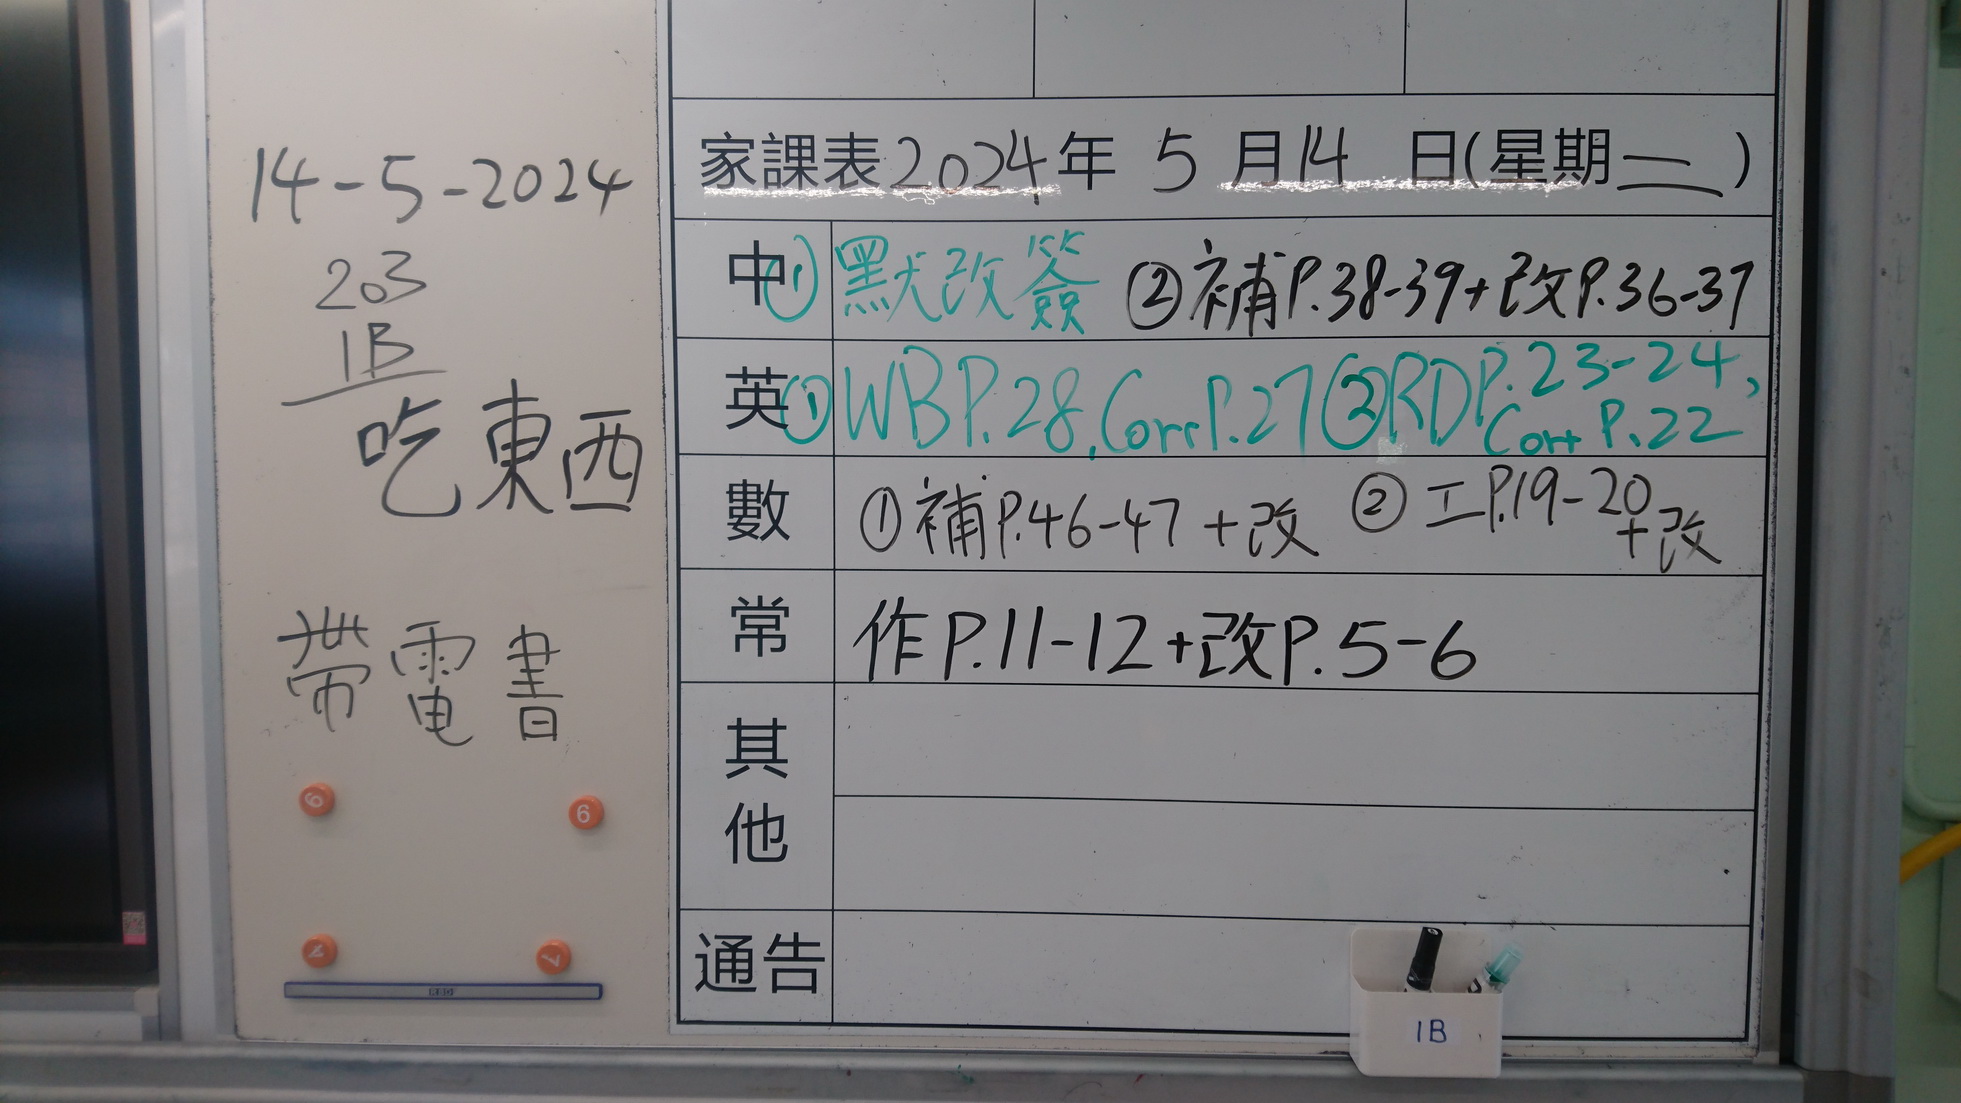 14-5-2024
203
1B
吃東西
帶電書
6
9
7
7
家課表2024年 5 月14 日(星期二)
中 ①默改簽 ②補P.38-39+改P.36-37
英 ①WB P.28, Corr P.27 ②RD P.23-24,
Corr P.22
數 ①補P.46-47+改 ②工P.19-20
+改
常 作P.11-12+改P.5-6
其
他
通告
1B